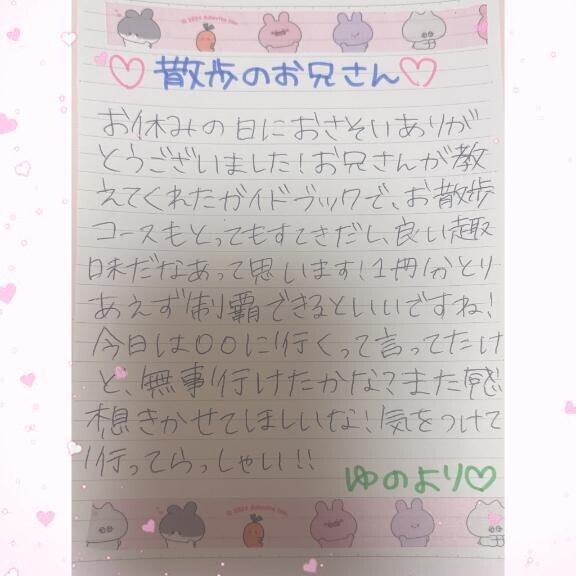 ♡散歩のお兄さん♡
お休みの日におさそいありが
とうございました！お兄さんが教
えてくれたガイドブックで、お散歩
コースもとってもすてきだし、良い趣
味だなあって思います！1冊分とり
あえず制覇できるといいですね！
今日は〇〇に行くって言ってたけ
ど、無事行けたかな？また感
想きかせてほしいな！気をつけて
行ってらっしゃい！！
ゆのより♡